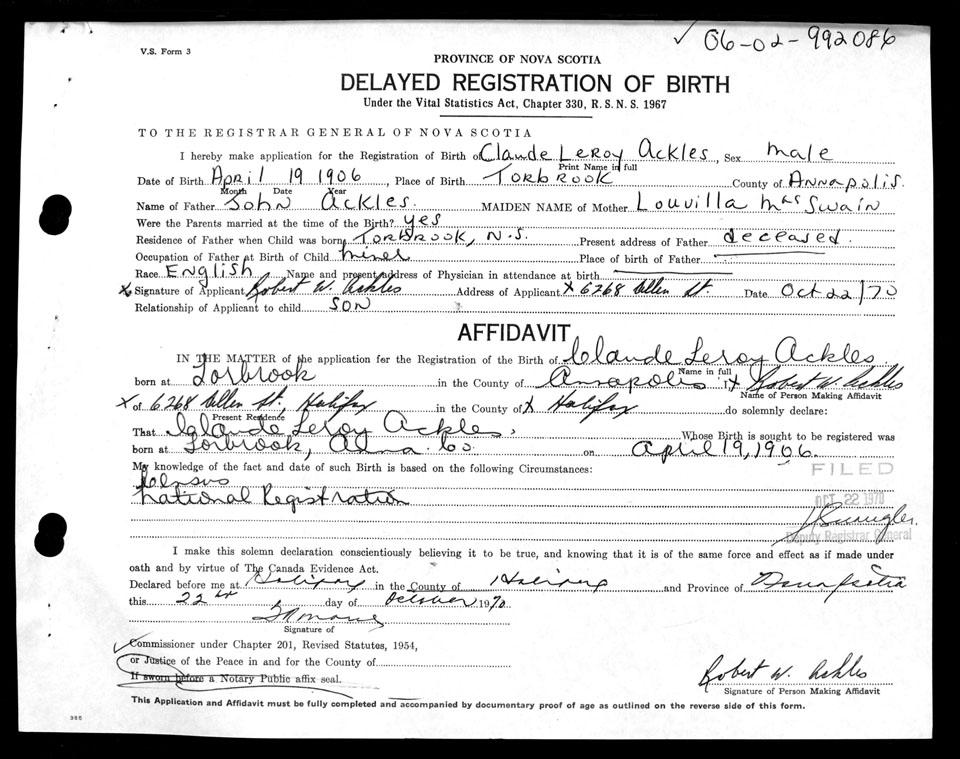 ✓ 06-02-992086
V.S. Form 3
PROVINCE OF NOVA SCOTIA
DELAYED REGISTRATION OF BIRTH
Under the Vital Statistics Act, Chapter 330, R.S.N.S. 1967
TO THE REGISTRAR GENERAL OF NOVA SCOTIA
I hereby make application for the Registration of Birth of Claude Leroy Ackles, Sex male
Print Name in full
Date of Birth April 19 1906, Place of Birth Torbrook County of Annapolis.
Month Date Year
Name of Father John Ackles. MAIDEN NAME of Mother Louvilla McSwain
Were the Parents married at the time of the Birth? yes
Residence of Father when Child was born Torbrook, N.S. Present address of Father deceased.
Occupation of Father at Birth of Child miner Place of birth of Father
Race English Name and present address of Physician in attendance at birth
x Signature of Applicant Robert W. Ackles Address of Applicant x 6268 Allen St. Date Oct 22/70
Relationship of Applicant to child SON
AFFIDAVIT
IN THE MATTER of the application for the Registration of the Birth of Claude Leroy Ackles
Name in full
born at Torbrook in the County of Annapolis I x Robert W. Ackles
Name of Person Making Affidavit
x of 6268 Allen St, Halifax in the County of x Halifax do solemnly declare:
Present Residence
That Claude Leroy Ackles, Whose Birth is sought to be registered was
born at Torbrook, Anna. Co. on April 19, 1906.
My knowledge of the fact and date of such Birth is based on the following Circumstances:
FILED
Census
National Registration
OCT 22 1970
Deputy Registrar General
I make this solemn declaration conscientiously believing it to be true, and knowing that it is of the same force and effect as if made under
oath and by virtue of The Canada Evidence Act.
Declared before me at Halifax in the County of Halifax and Province of Nova Scotia
this 22nd day of October 1970
Signature of
✓ Commissioner under Chapter 201, Revised Statutes, 1954,
or Justice of the Peace in and for the County of
If sworn before a Notary Public affix seal.
Robert W. Ackles
Signature of Person Making Affidavit
This Application and Affidavit must be fully completed and accompanied by documentary proof of age as outlined on the reverse side of this form.
385